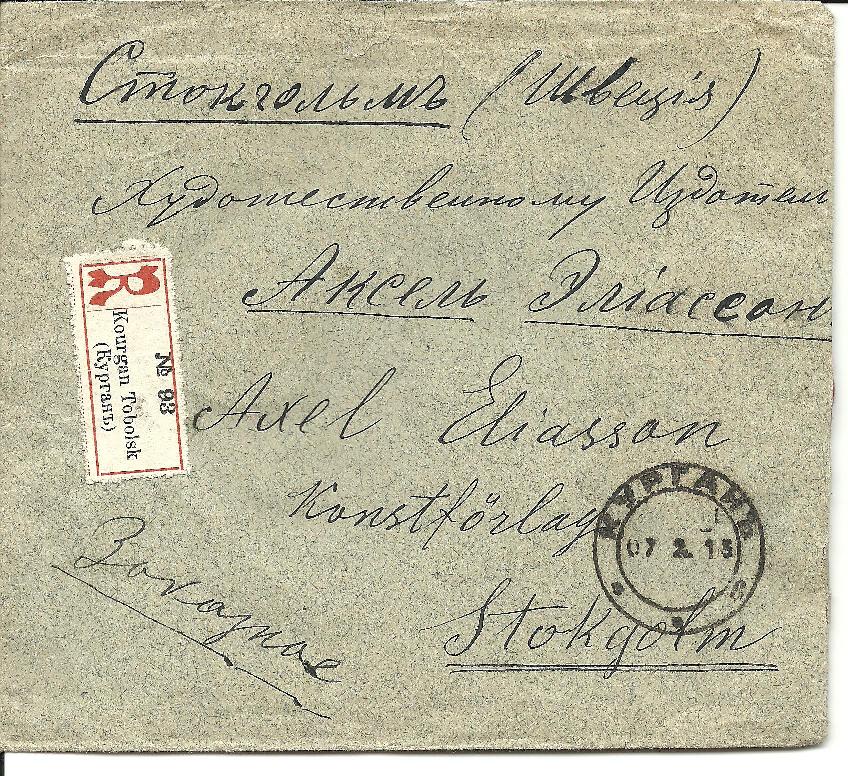 Стокгольмъ (Швецiя)
Художественному Издател
Аксель Элiассон
R
№ 93
Kourgan Tobolsk
(Курганъ)
Axel Eliasson
Konstförlag
КУРГАНЪ
07 2. 15
Заказное
Stokgolm